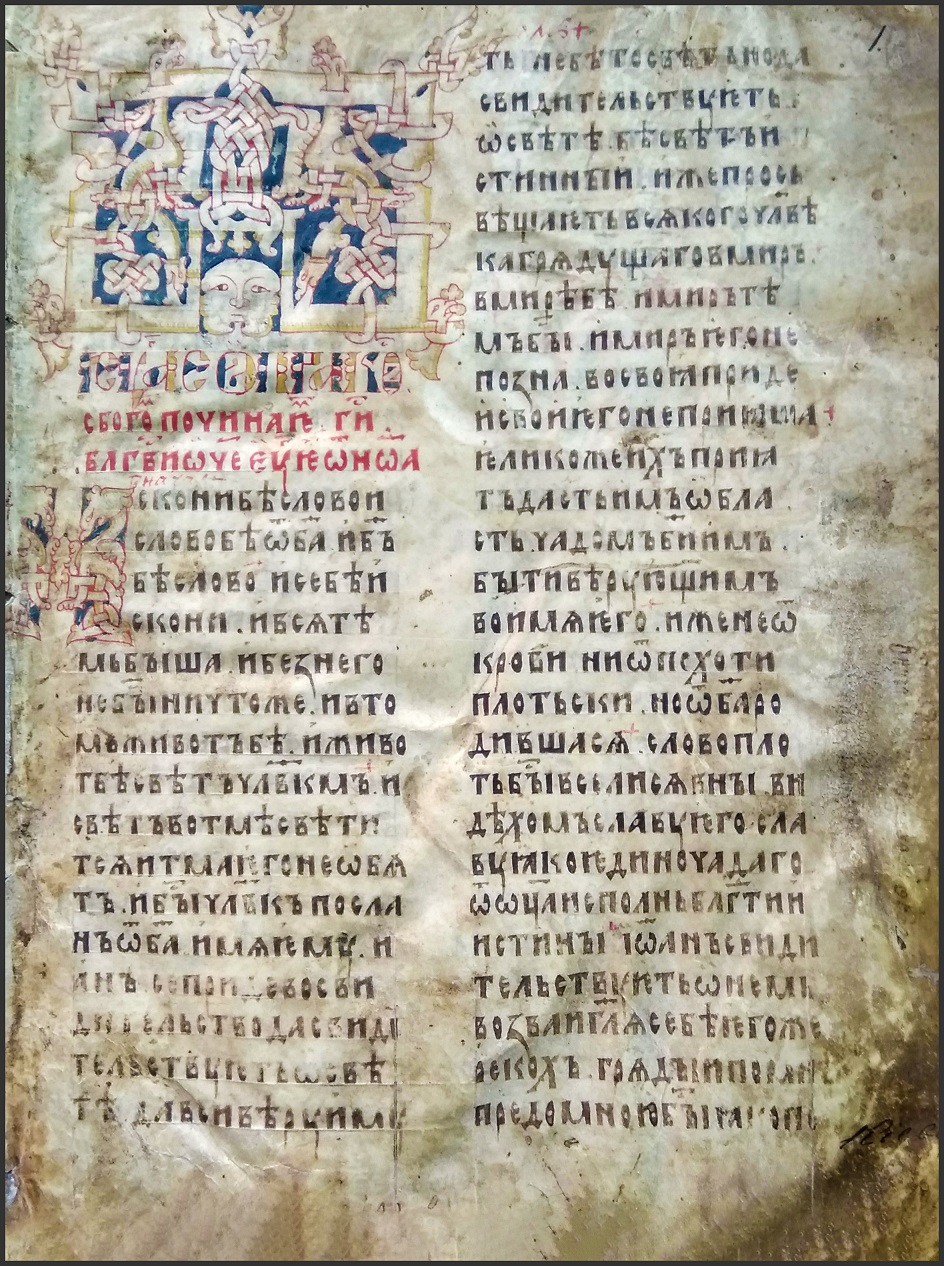 сбогопочинаѥ. ги
блгвиѡчеєуⷢ҇ѥѿиѡа
сконибѣсловои
словобѣѿба.ибъ
бѣслово исебѣи
скони.ибсѧтѣ
мьбꙑша.ибезнего
небꙑничтоже.ивто
мьживотъбѣ.иживо
тбѣсвѣтъчл҃вкмъ.и
свѣтъвотмѣсвѣти
тсѧитмаѥгонеѡбѧ
тъ.ибꙑчл҃вкъпосла
нъѿба.имѧѥмꙋ.и
анъ.сепридевосви
дительстводасвиди
тельствуѥтьѡсвѣ
тѣ.давсивѣруимꙋ
ть небѣтосвѣтънода
свидительствуѥть.
ѡсвѣтѣ.бѣсвѣтъи
стиннꙑи.ижепросв
вѣщаѥтьвсѧкогочл҃вѣ
кагрѧдущаговмиръ.
вмирѣбѣ.имирътѣ
мъбꙑ.имиръѥгоне
позна.восвоꙗприде
исвоиѥгонеприꙗша
ѥликожеихъприꙗ
тъдастьимъѡбла
сть.чадомъбиимъ.
бꙑтивѣрующимъ
воимѧѥго.иженеѿ
крови ниѿпохоти
плотьски.ноѿбаро
дившасѧ.словопло
тьбꙑвселисѧвнꙑ.ви
дѣхомъславуѥго.сла
вуꙗкоѥдиночадаго
ѿѡц҃аисполньблг҃тии
истинꙑ іѡанъсвиди
тельствуѥтьѡнемь
возъваигл҃ѧсебѣѥгоже
рекохъ.грѧдꙑипомн
предомноюбꙑꙗкопе